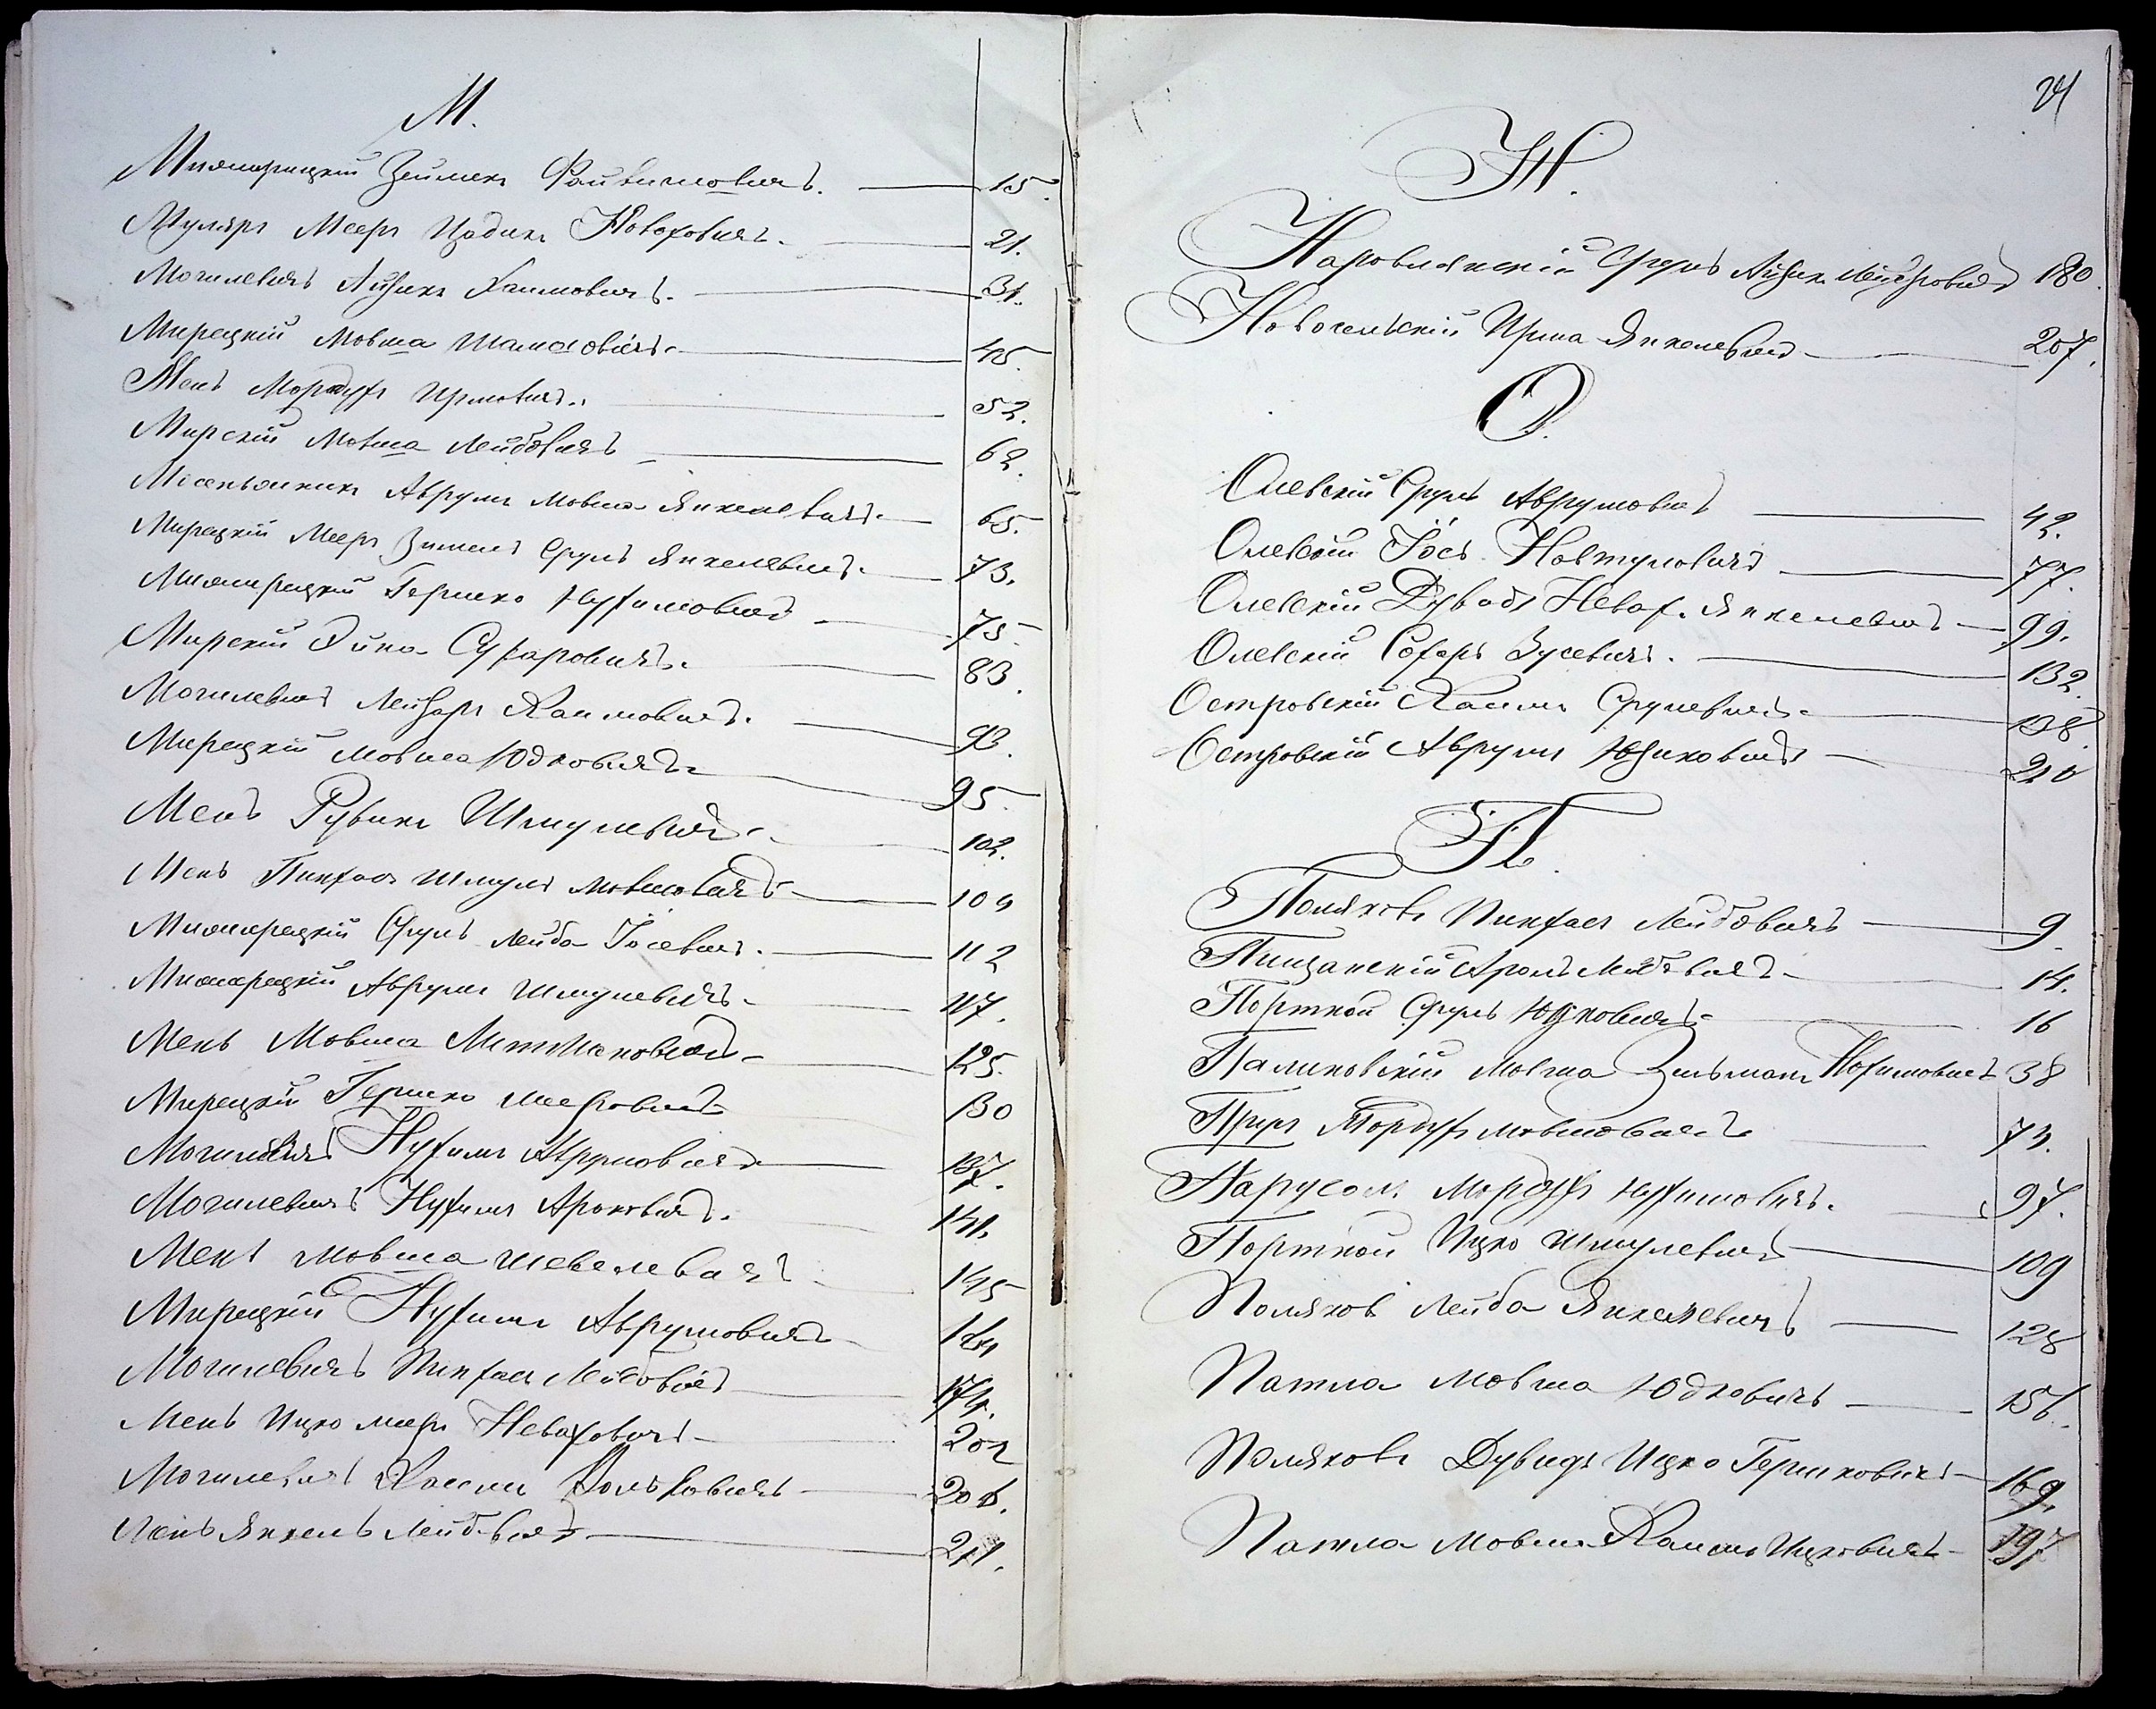 М.
Миланрицкій Зейликъ Файвишовичъ. 15.
Муляръ Мееръ Цадикъ Новоховичъ. 21.
Могилевичъ Айзикъ Хаимовичъ. 31.
Мирецкій Мовша Шамаовичъ. 45.
Мень Мордухъ Ирмовичъ. 52.
Мирскій Мовша Лейбовичъ 62.
Аврумъ Мовша Янкелевичъ. 65.
Мирецкій Мееръ Зимель Сруль Янкелевичъ. 73.
Гершко Нухимовичъ 75.
Мирскій Эйна Сухаровичъ. 83.
Могилевичъ Лейзаръ Хаимовичъ. 93.
Мирецкій Мовша Юдковичъ 95.
Мень Рувинъ Шмулевичъ. 102.
Мень Пинхасъ Шмуль Мовшовичъ 109
Сруль Лейба Іосевичъ. 112
Аврумъ Шмулевичъ. 117.
Мень Мовша 125.
Мирецкій Гершко Мееровичъ 130
Могилевичъ Нухимъ Аврумовичъ 137.
Могилевичъ Нухимъ Ароновичъ. 141.
Мень Мовша Шевелевичъ 145
Мирецкій Нухимъ Аврумовичъ 164
Могилевичъ Пинхасъ Лейбовичъ 174.
Мень Ицко Мееръ Неваховичъ 202
Могилевичъ Хаимъ Вольфовичъ 206.
Мень Янкель Лейбовичъ 211.
24
Н.
Наровлянскій Сруль Айзикъ Лейзеровичъ 180.
Новосельскій Ирма Янкелевичъ 207.
О.
Олевскій Сруль Аврумовичъ 42.
Олевскій Іось Новтуловичъ 77.
Олевскій Дувидъ Невах. Янкелевичъ 99.
Олевскій Соферъ Зусевичъ. 132.
Островскій Хаимъ Срулевичъ. 138.
Островскій Аврумъ Юзиковичъ 210
П.
Поляковъ Пинхасъ Лейбовичъ 9
Пищанскій Аронъ Лейбовичъ 14.
Портной Сруль Юдковичъ. 16
Паликовскій Мовша Зильманъ Нохимовичъ 38
Пруг Мордухъ Мовшовичъ 73.
Парусом. Мордухъ Нухимовичъ. 97.
Портной Ицко Шмулевичъ 109
Поляков Лейба Янкелевичъ 128
Патла Мовша Юдковичъ 156.
Поляковъ Дувидъ Ицко Гершковичъ 169.
Патла Мовша Хаимъ Ицковичъ 197